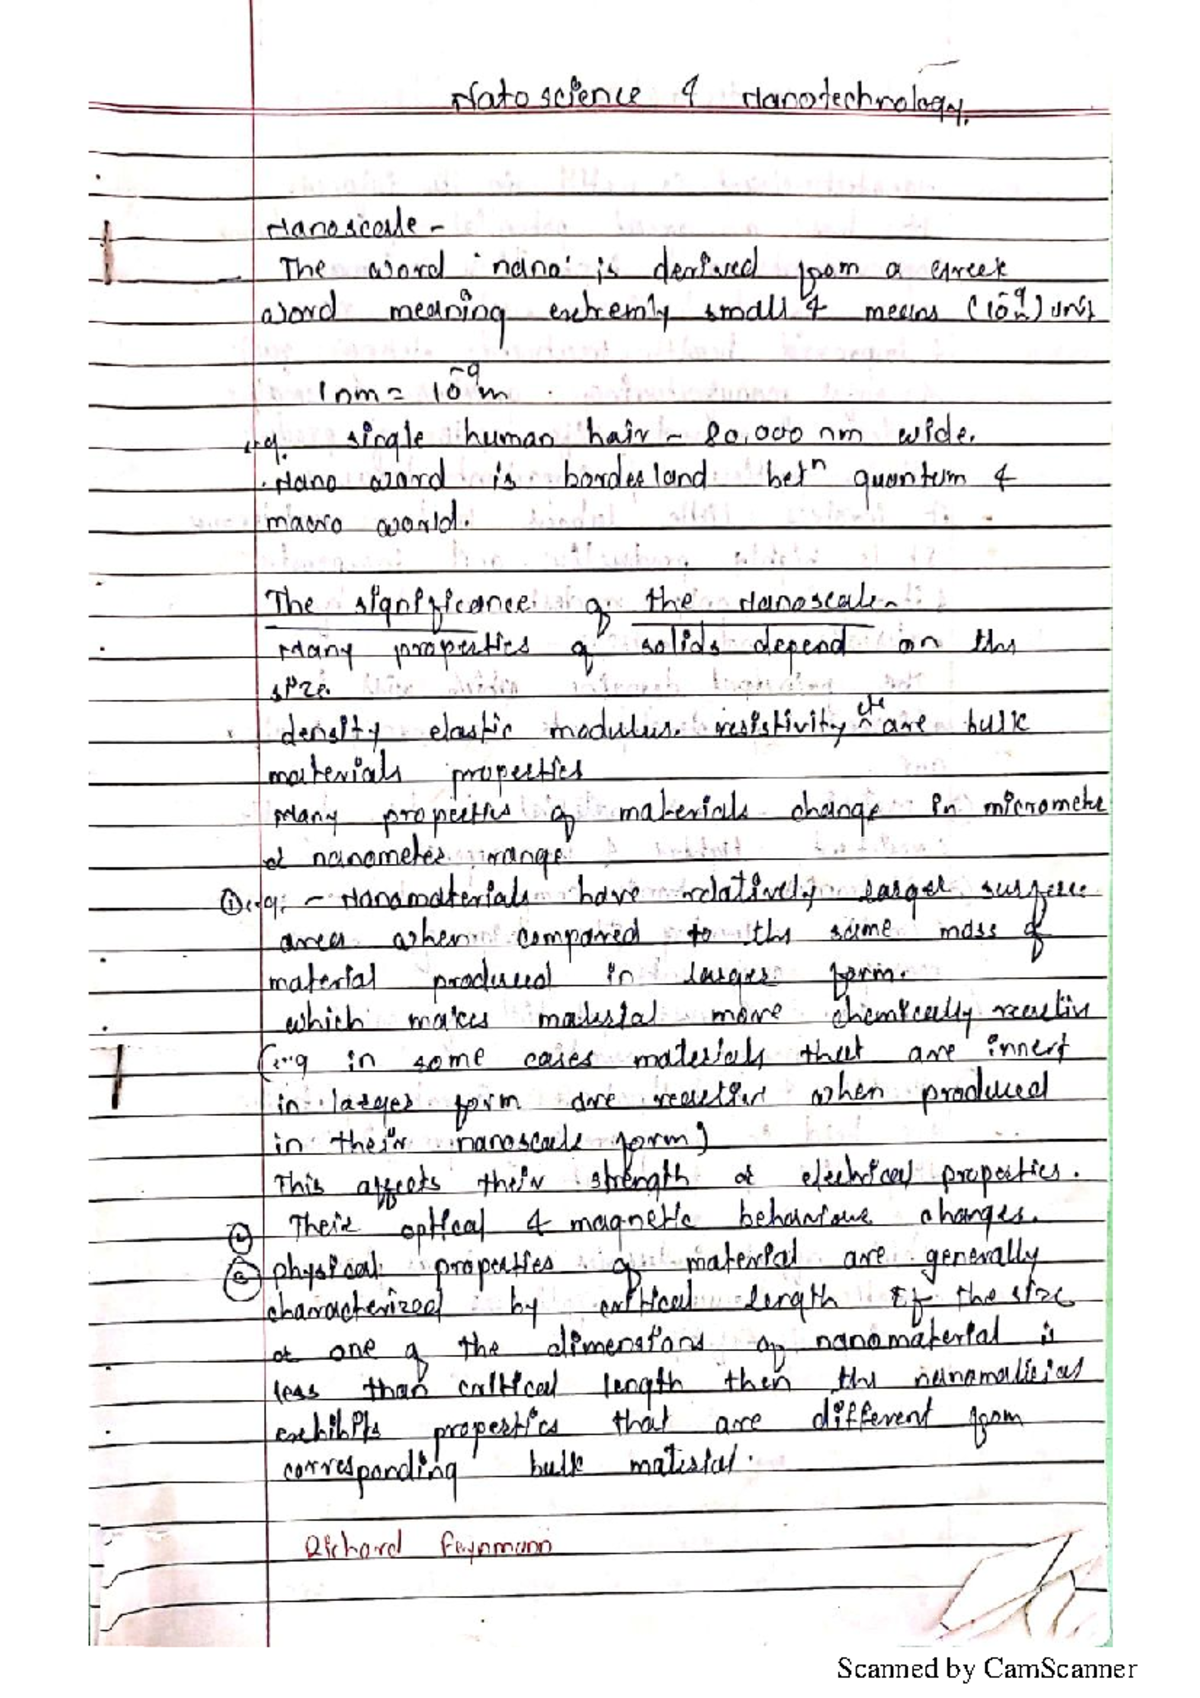 Natoscience & Nanotechnology.
Nanoscale -
The word 'nano' is derived from a Greek
word meaning extremly small & means (10⁻⁹) unit
1 nm = 10⁻⁹ m
e.g. single human hair - 80,000 nm wide.
Nano word is borderland betⁿ quantum &
macro world.
The significance of the Nanoscale-
Many properties of solids depend on the
size.
density elastic modulus. resistivity etc are bulk
materials properties
Many properties of materials change in micrometer
or nanometer range.
① e.g. - Nanomaterials have relatively larger surface
area when compared to the same mass of
material produced in larger form.
which makes material more chemically reactiv
(e.g in some cases materials that are innert
in larger form are reactive when produced
in their nanoscale form)
This affects their strength or electrical properties.
② Their optical & magnetic behaviour changes.
③ physical properties of material are generally
characterized by critical length If the size
or one of the dimensions of nanomaterial is
less than critical length then the nanomaterial
exhibits properties that are different from
corresponding bulk material.
Richard Feynmann
Scanned by CamScanner